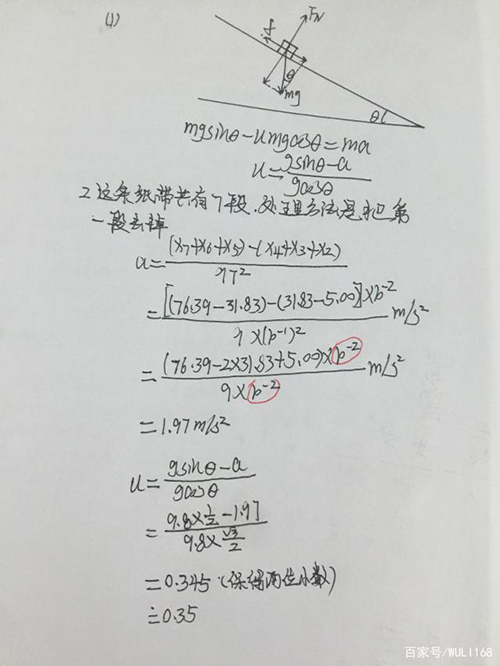 (1)
f FN
θ
mg
θ
mgsinθ-umgcosθ=ma
u=(gsinθ-a)/(gcosθ)
2 这条纸带共有7段,处理方法是把第
一段去掉
a=((x7+x6+x5)-(x4+x3+x2))/(9T²)
=([(76.39-31.83)-(31.83-5.00)]×10⁻²)/(9×(10⁻¹)²) m/s²
=((76.39-2×31.83+5.00)×10⁻²)/(9×10⁻²) m/s²
=1.97m/s²
u=(gsinθ-a)/(gcosθ)
=(9.8×1/2-1.97)/(9.8×√3/2)
=0.345 (保留两位小数)
≐0.35
百家号/WULI168